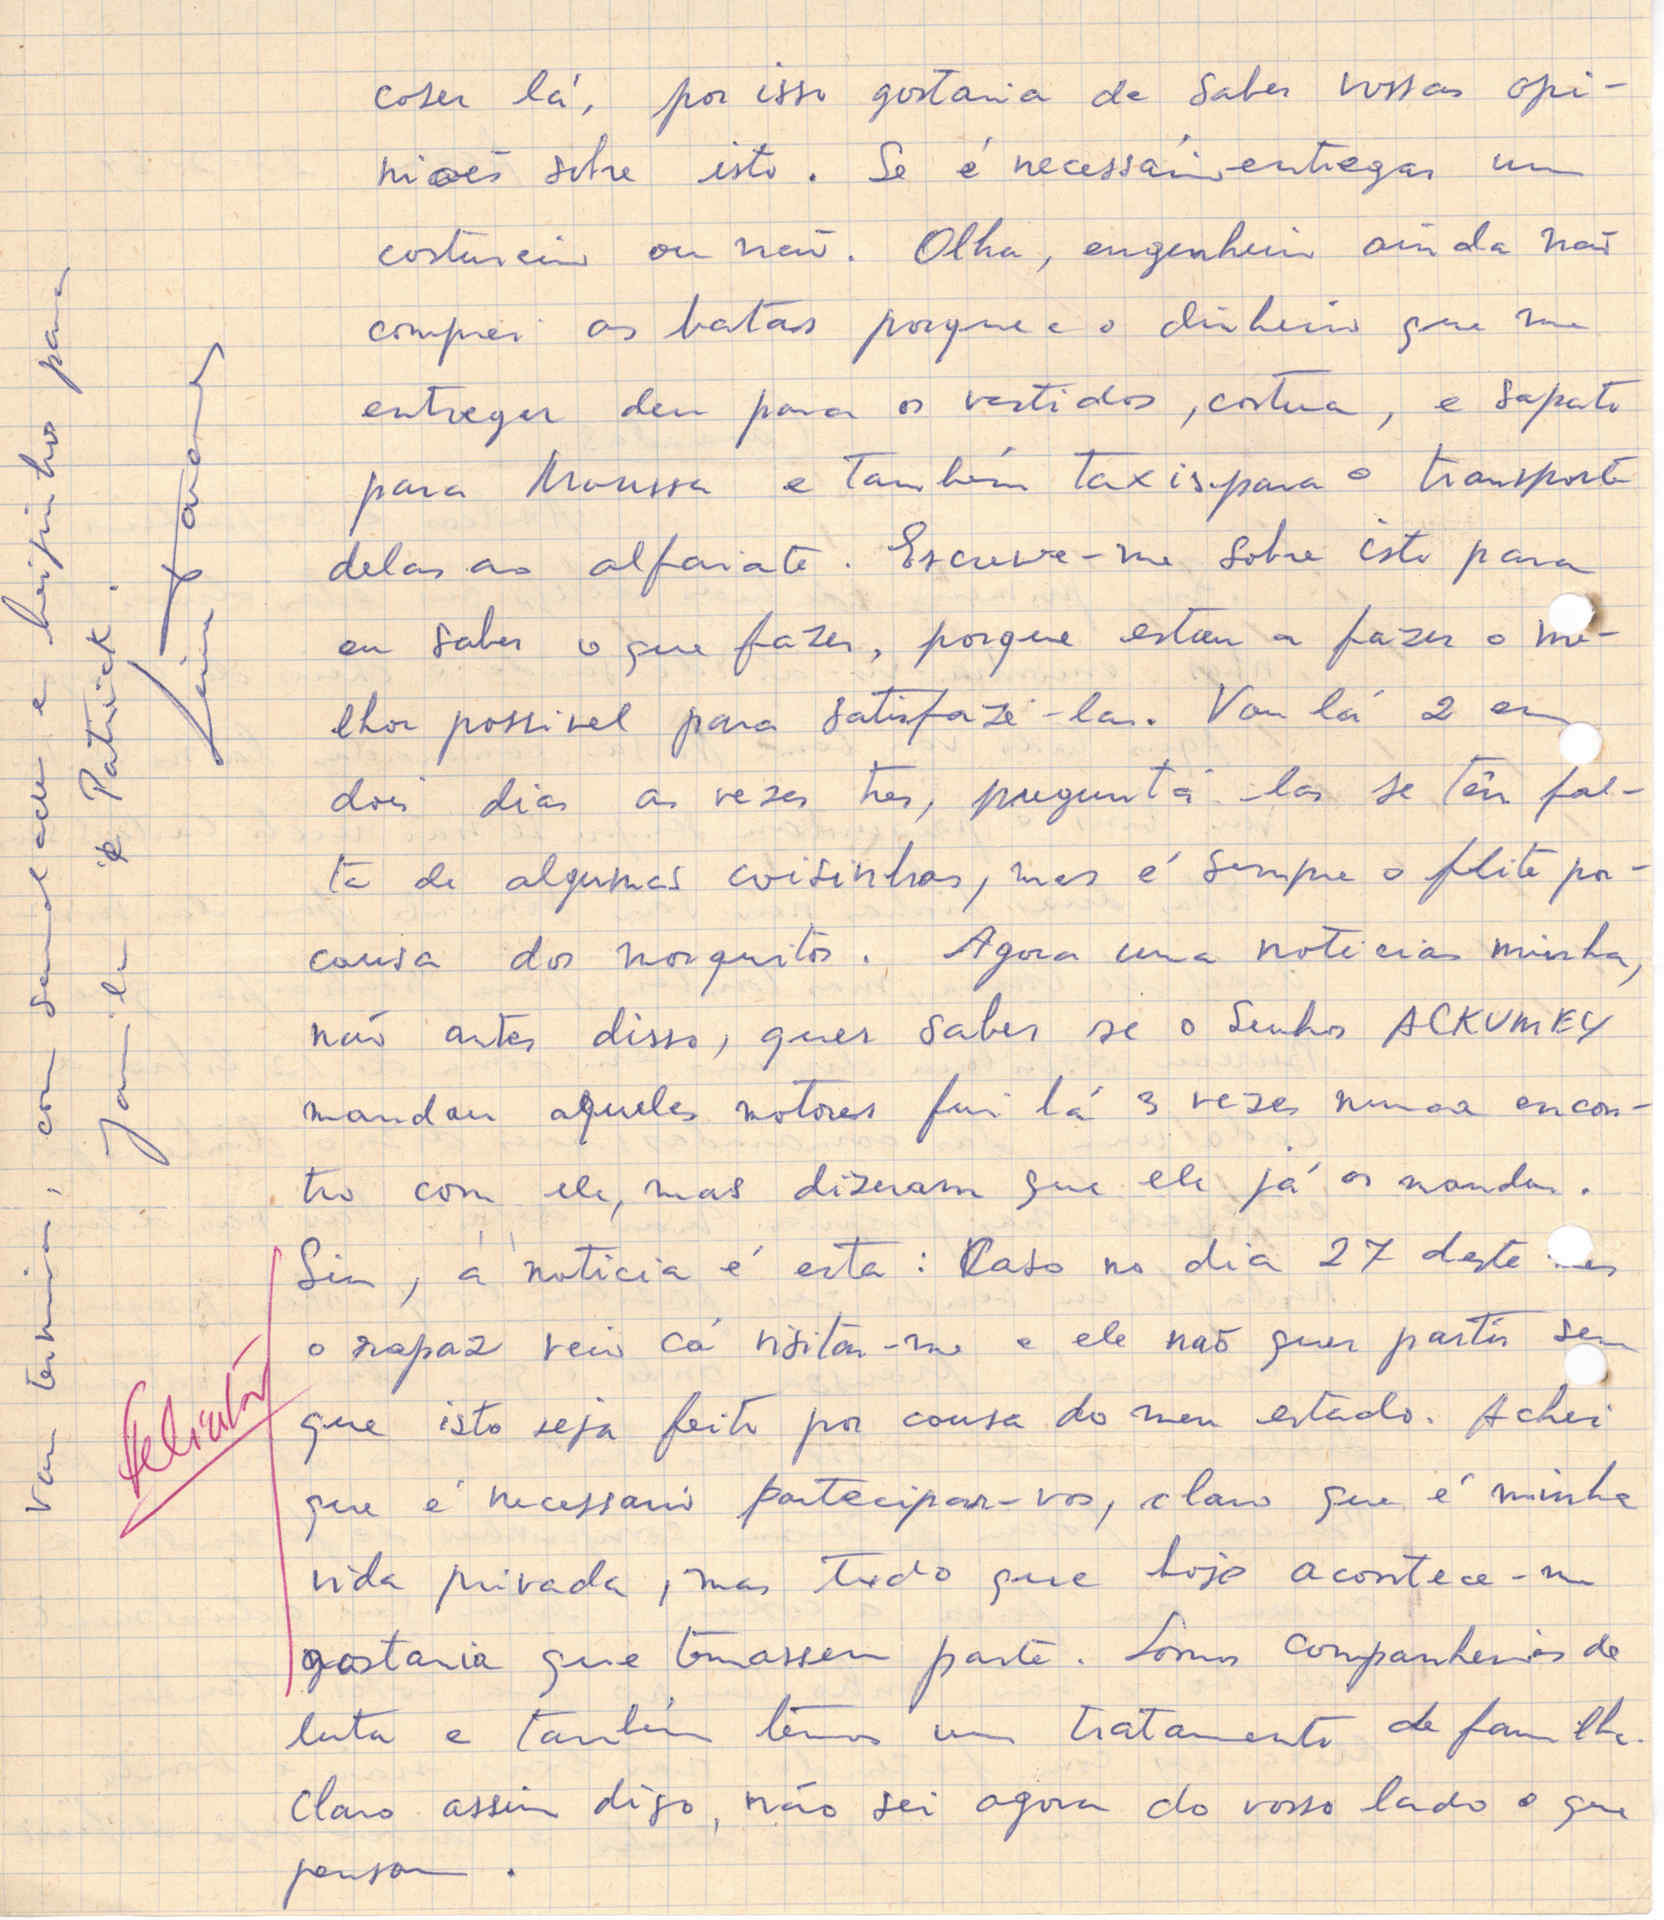 coser lá, por isso gostaria de saber vossas opi-
niões sobre isto. Se é necessário entregar um
costureiro ou não. Olha, engenheiro ainda não
comprei as batas porque e o dinheiro que me
entregar deu para os vestidos, costura, e sapato
para Moussa e também taxis para o transporte
delas ao alfaiate. Escreve-me sobre isto para
eu saber o que fazer, porque estou a fazer o me-
lhor possivel para satisfazê-las. Vou lá 2 em
dois dias as vezes tres, preguntá-las se têm fal-
ta de algumas coisinhas, mas é sempre o flite por-
causa dos mosquitos. Agora uma noticias minha,
não antes disso, quer saber se o Senhor ACKUMEY
mandou aqueles motores fui lá 3 vezes nunca encon-
tro com ele, mas dizeram que ele já os mandou.
Sim, a noticia é esta: Caso no dia 27 deste mes
o rapaz veio cá visitar-me e ele não quer partir sem
que isto seja feito por causa do meu estado. Achei
que é necessario partecipar-vos, claro que é minha
vida privada, mas tudo que hoje acontece-me
gostaria que tomassem parte. Somos companheiros de
luta e também temos um tratamento de familha.
Claro assim digo, não sei agora do vosso lado o que
pensam.
Vou terminar, com saudade e beijinhos para
Jamila e Patrick.
Felicitar